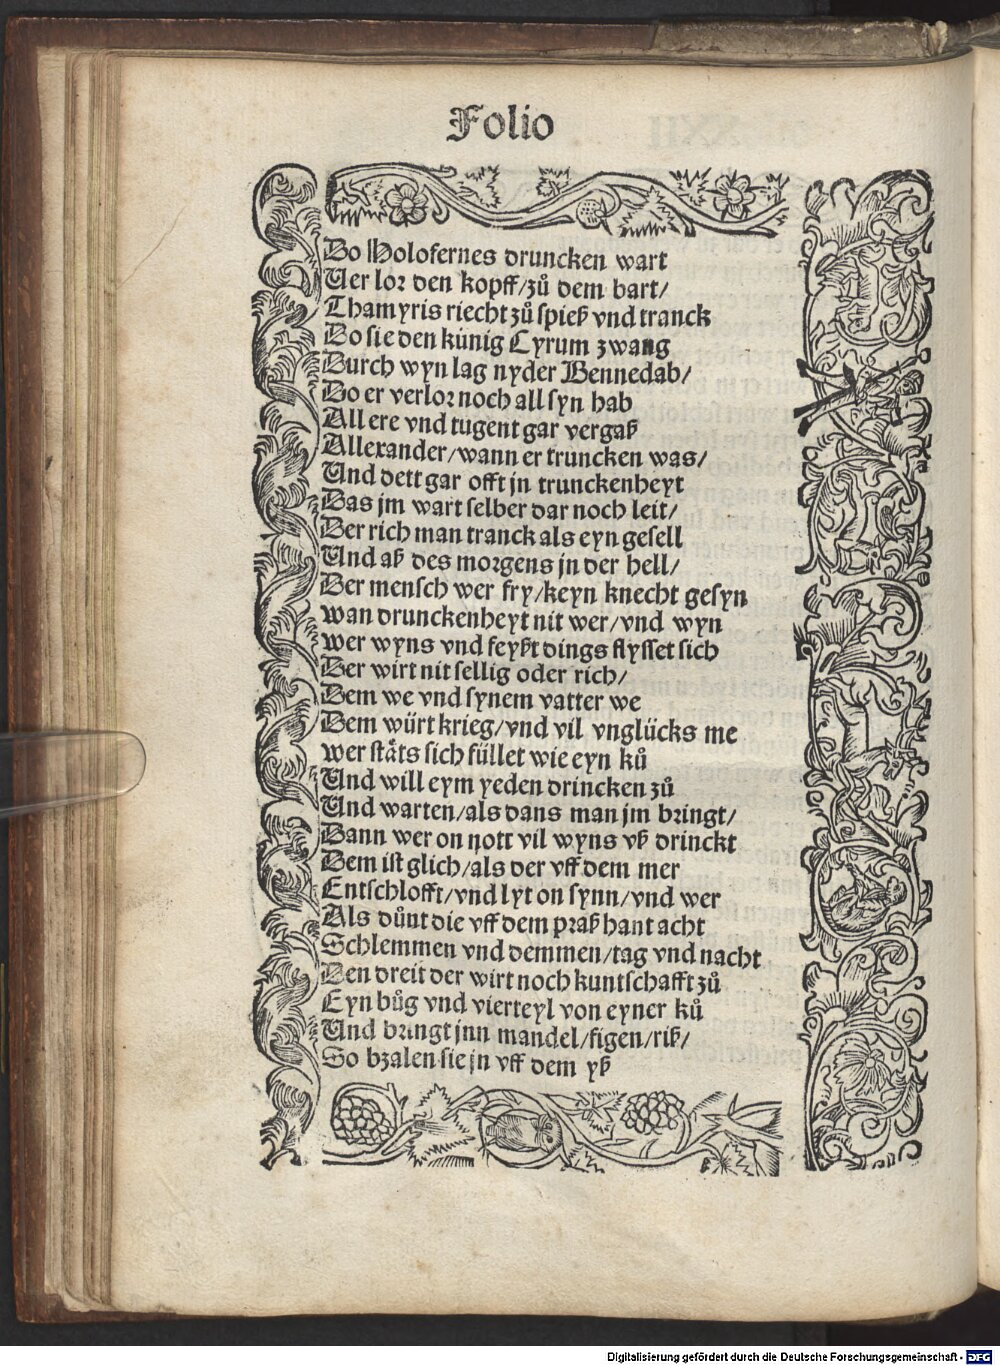 Folio
Do Holofernes druncken wart
Uerlor den kopff/zů dem bart/
Thamyris riecht zů spieß vnd tranck
Do sie den künig Cyrum zwang
Durch wyn lag nyder Bennedab/
Do er verlor noch all syn hab
All ere vnd tugent gar vergaß
Allexander/wann er truncken was/
Und dett gar offt jn trunckenheyt
Das jm wart selber dar noch leit/
Der rich man tranck als eyn gesell
Und aß des morgens jn der hell/
Der mensch wer fry/keyn knecht gesyn
wan drunckenheyt nit wer/vnd wyn
wer wyns vnd feyßt dings flysset sich
Der wirt nit sellig oder rich/
Dem we vnd synem vatter we
Dem würt krieg/vnd vil vnglücks me
wer stäts sich füllet wie eyn ků
Und will eym yeden drincken zů
Und warten/als dans man jm bringt/
Dann wer on nott vil wyns vß drinckt
Dem ist glich/als der vff dem mer
Entschlofft/vnd lyt on synn/vnd wer
Als důnt die vff dem praß hant acht
Schlemmen vnd demmen/tag vnd nacht
Den dreit der wirt noch kuntschafft zů
Eyn bůg vnd vierteyl von eyner ků
Und bringt jnn mandel/figen/riß/
So bzalen sie jn vff dem yß
Digitalisierung gefördert durch die Deutsche Forschungsgemeinschaft - DFG